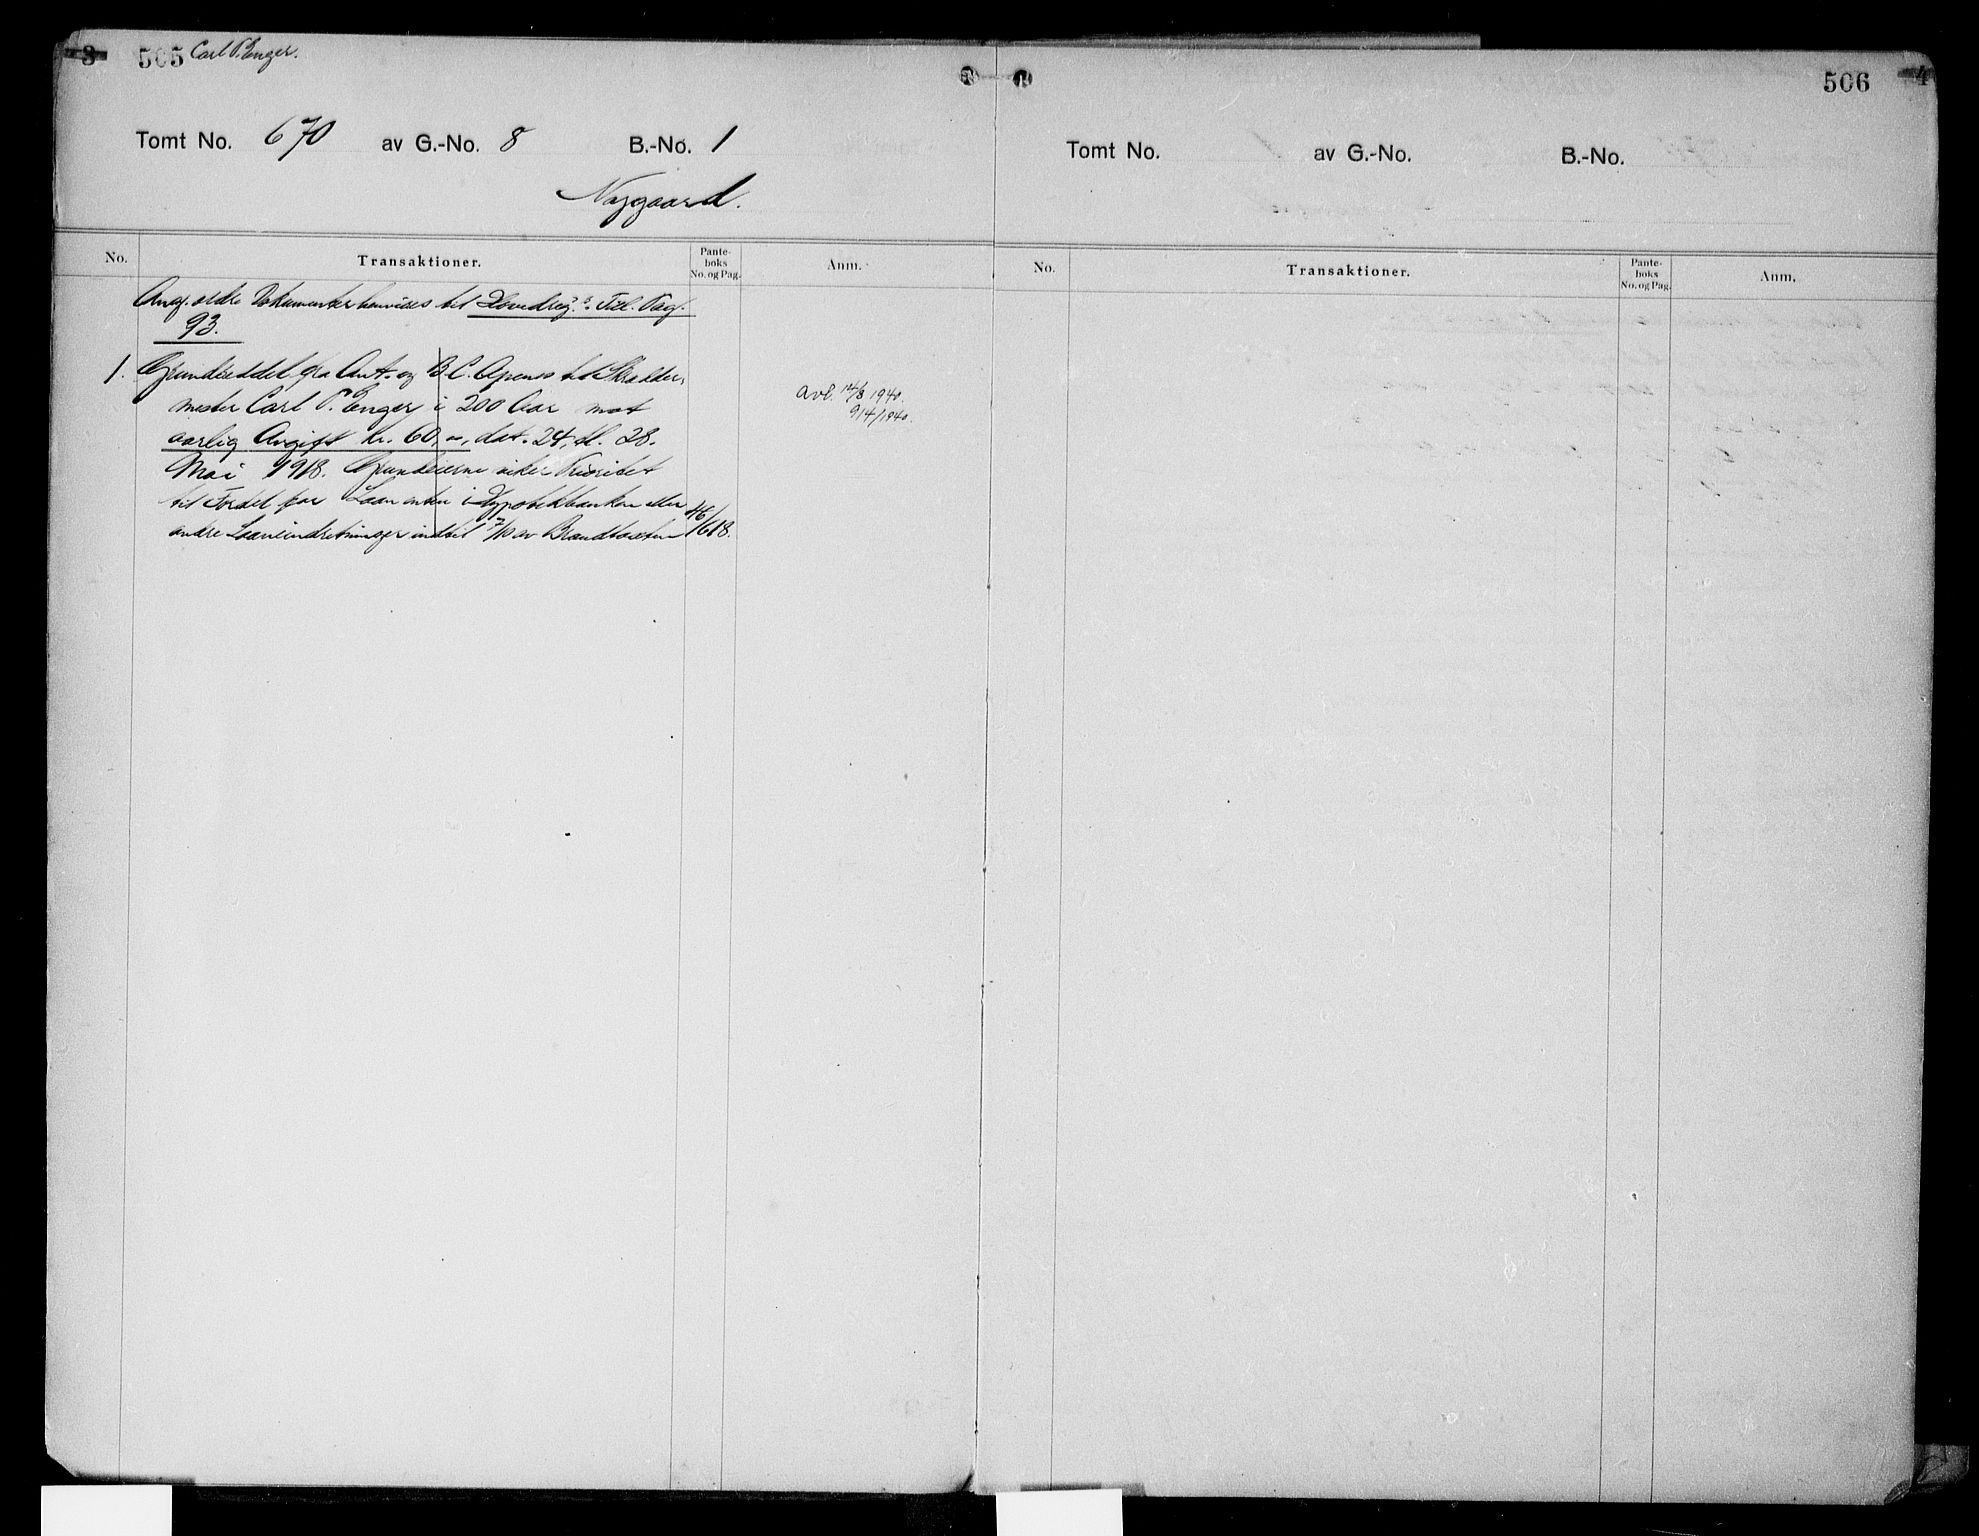 3 505 Carl P. Enger.
Tomt No. 670 av G.-No. 8 B.-No. 1
Nøggaard.
No. Transaktioner. Pante-boks No. og Pag. Anm.
Ang. ældre Dokumenter henvises til Hovedreg. Pag.
93.
1. Grundseddel fra Ant. og B. C. Apenes til Skrædder-
mester Carl P. Enger i 200 Aar mot
aarlig Avgift kr. 60,-, dat. 24, tl. 28.
Mai 1918. Grundeierne viker Prioritet
til Fordel for Laan enten i Hypotekbanken eller
andre Laaneindretninger indtil 7/10 av Brandtaxten 46/618.
Avl. 14/8 1940.
914/1940.
506 4
Tomt No. av G.-No. B.-No.
No. Transaktioner. Pante-boks No. og Pag. Anm.